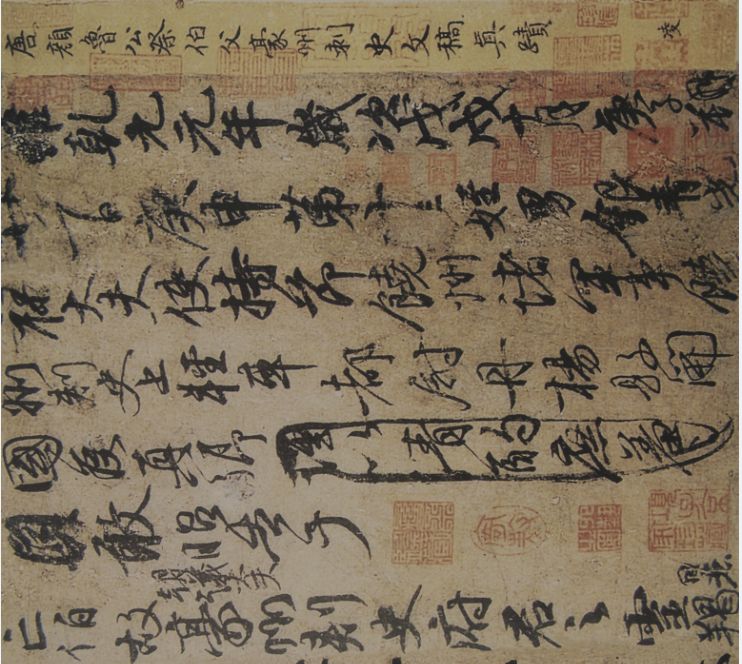 唐顏魯公祭伯父豪州刺史文稿真蹟
維乾元元年歲次戊戌十月庚子朔
廿一日庚申第十三姪男銀青光
祿大夫使持節饒州諸軍事饒
州刺史上輕車都尉丹楊縣開
國侯真卿謹以清酌庶羞
敢昭告于
朝議大夫
亡伯故豪州刺史府君之靈曰